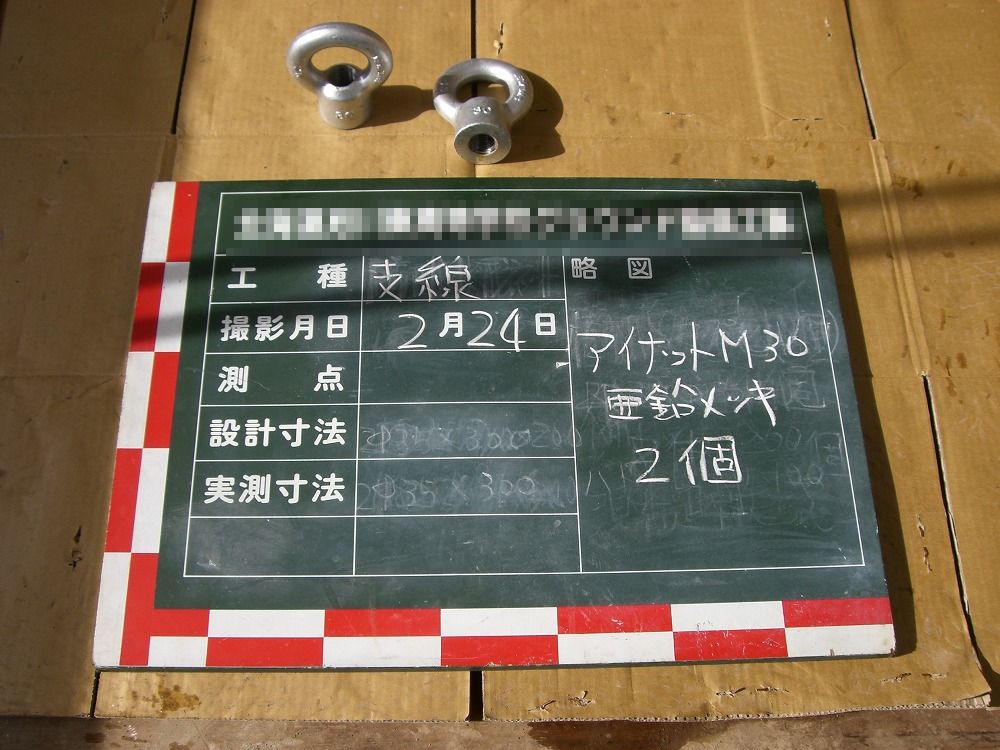 30
工種 支線
略図
撮影月日 2月24日
測点
設計寸法
実測寸法
アイナットM30
亜鉛メッキ
2個